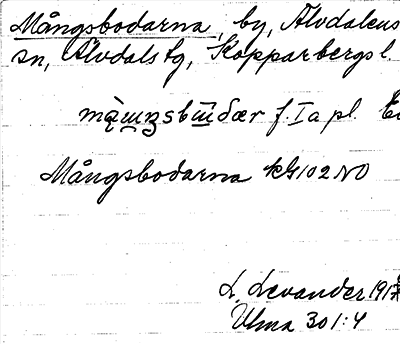 Mångsbodarna, by, Älvdalens
sn, Älvdals tg, Kopparbergs l.
f. I a pl.
Mångsbodarna kG102 NO
L. Levander 191
Ulma 301:4